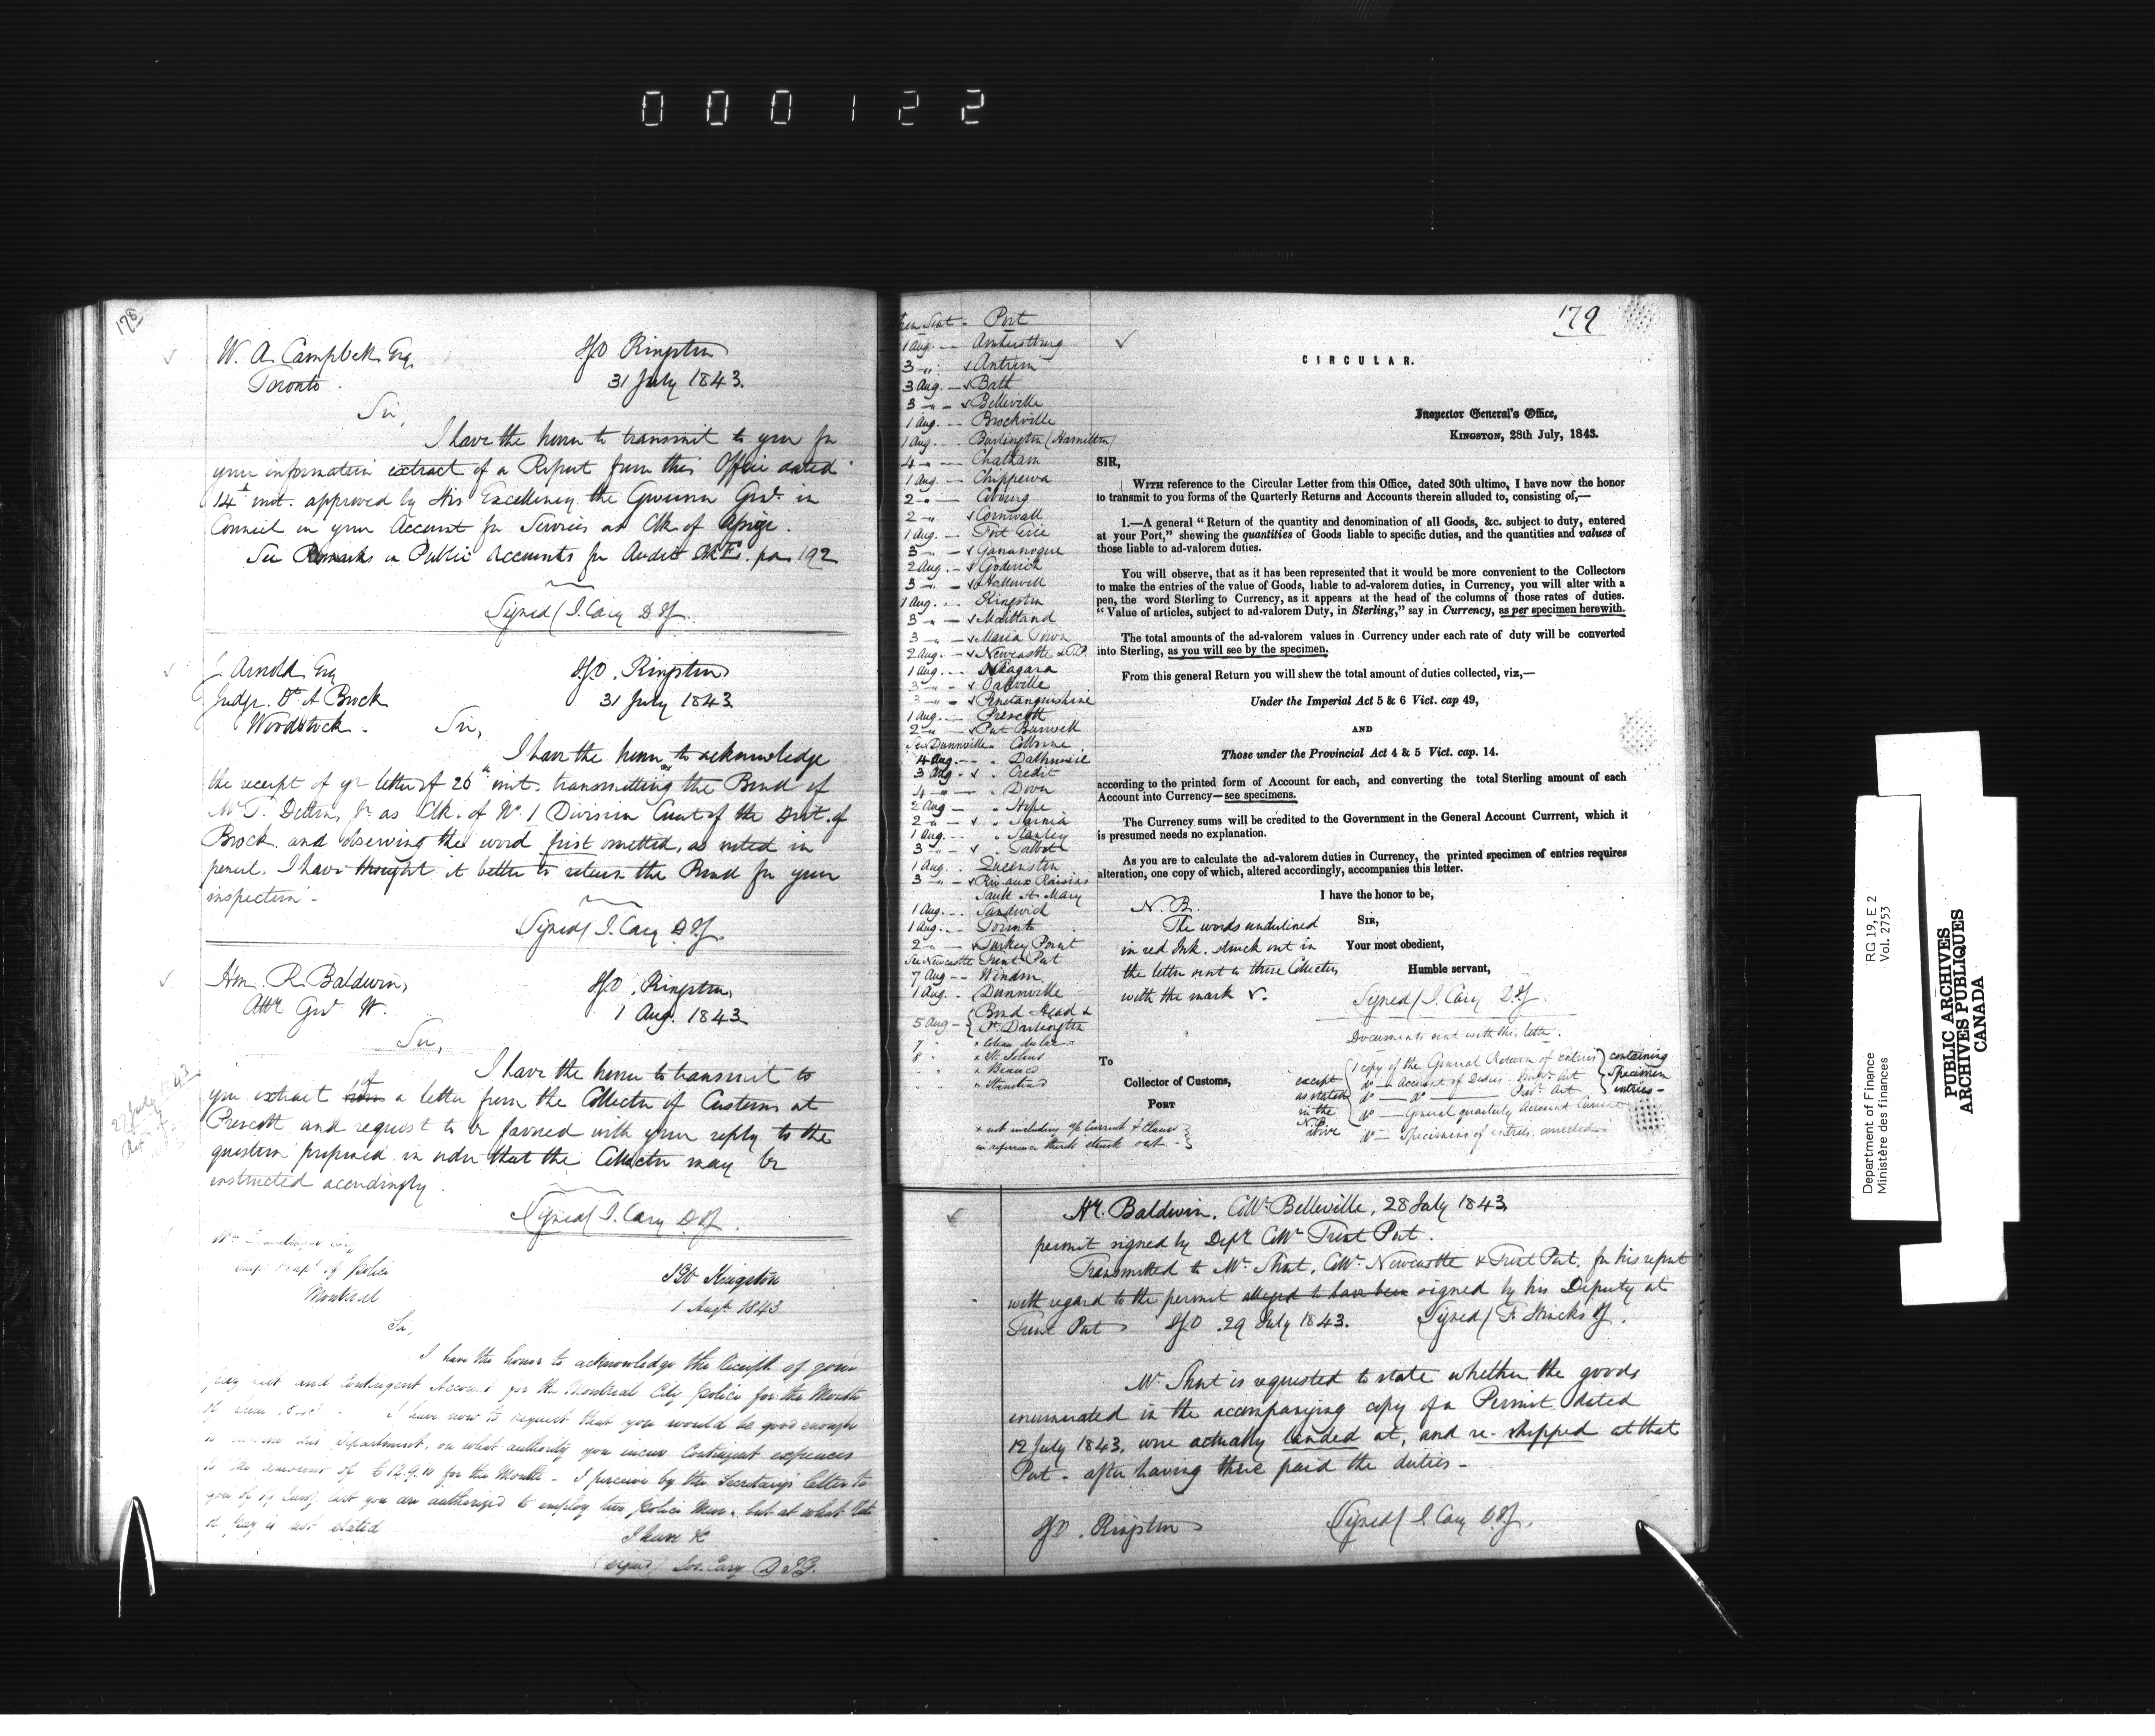 000122
178
W. A. Campbell Esq.
Toronto.
IGO Kingston
31 July 1843.
Sir,
I have the honor to transmit to you for
your information extract of a Report from this Office dated
14th inst. approved by His Excellency the Governor Genl. in
Council on your Account for Services as Clk of Assize.
See Remarks in Public Accounts for Audit
192
Signed/ J. Cary D.I.G.
J Arnold Esq
Judge Dt. of Brock
Woodstock.
IGO. Kingston
31 July 1843
Sir,
I have the honor to acknowledge
the receipt of yr letter of 26th inst. transmitting the Bond of
as Clk. of No. 1 Division Court of the Dist. of
Brock and observing the word first omitted, as noted in
pencil. I have thought it better to return the Bond for your
inspection.
Signed/ J. Cary D.I.G.
Hon. R. Baldwin,
Atty Genl. W.
IGO. Kingston,
1 Aug. 1843
Sir,
I have the honor to transmit to
you extract from of a letter from the Collector of Customs at
Prescott and request to be favored with your reply to the
question proposed in order that the Collector may be
instructed accordingly.
Signed/ J. Cary D.I.G.
of Police
Montreal
IGO Kingston
1 Augt 1843
Sir,
I have the honor to acknowledge the Receipt of your
pay list and Contingent Account for the Montreal City Police for the Month
I have now to request that you would be good enough
this Department, on what authority you incur Contingent expences
to the amount of £12.9.10 for the Month - I perceive by the Secretary's letter to
you are authorized to employ two Police Men, but at what rate
of pay is not stated
I have &c
(signed) Jos. Cary D I.G.
179
When Sent - Port
1 Aug. - Amherstburg
3 - " - v Antrim
3 Aug. - v Bath
3 - " - v Belleville
1 Aug. - Brockville
1 Aug. - Burlington (Hamilton)
4 - " - Chatham
1 Aug. - Chippewa
2 - " - Cobourg
2 - " - v Cornwall
1 Aug. - Fort Erie
3 - " - v Gananoque
2 Aug. - v Goderich
3 - " - v Hallowell
1 Aug. - Kingston
3 - " - v Maitland
3 - " - v Maria Town
2 Aug. - v Newcastle & T.P.
1 Aug. - Niagara
3 - " - v Oakville
3 - " - v Penetanguishine
1 Aug. - Prescott
2 - " - v Port Burwell
See Dunnville " Colborne
4 Aug. - " Dalhousie
3 Aug - v " Credit
4 - " - " Dover
2 Aug - " Hope
2 - " - v " Sarnia
1 Aug. - " Stanley
3 - " - v " Talbot
1 Aug. - Queenston
3 - " - v Riv. aux Raisins
Sault St Mary
1 Aug. - Sandwich
1 Aug. - Toronto
2 - " - v Turkey Point
See Newcastle Trent Port
7 Aug - - Windsor
1 Aug. - Dunnville
5 Aug - { Bond Head &
Pt Darlington
7 " x Coteau du lac
8 " x St. Johns
" " x Beauce
" " x Stanstead
CIRCULAR.
Inspector General's Office,
KINGSTON, 28th July, 1843.
SIR,
WITH reference to the Circular Letter from this Office, dated 30th ultimo, I have now the honor
to transmit to you forms of the Quarterly Returns and Accounts therein alluded to, consisting of,—
1.—A general "Return of the quantity and denomination of all Goods, &c. subject to duty, entered
at your Port," shewing the quantities of Goods liable to specific duties, and the quantities and values of
those liable to ad-valorem duties.
You will observe, that as it has been represented that it would be more convenient to the Collectors
to make the entries of the value of Goods, liable to ad-valorem duties, in Currency, you will alter with a
pen, the word Sterling to Currency, as it appears at the head of the columns of those rates of duties.
"Value of articles, subject to ad-valorem Duty, in Sterling," say in Currency, as per specimen herewith.
The total amounts of the ad-valorem values in Currency under each rate of duty will be converted
into Sterling, as you will see by the specimen.
From this general Return you will shew the total amount of duties collected, viz,—
Under the Imperial Act 5 & 6 Vict. cap 49,
AND
Those under the Provincial Act 4 & 5 Vict. cap. 14.
according to the printed form of Account for each, and converting the total Sterling amount of each
Account into Currency—see specimens.
The Currency sums will be credited to the Government in the General Account Currrent, which it
is presumed needs no explanation.
As you are to calculate the ad-valorem duties in Currency, the printed specimen of entries requires
alteration, one copy of which, altered accordingly, accompanies this letter.
I have the honor to be,
SIR,
Your most obedient,
Humble servant,
Signed/ J. Cary D.I.G.
N.B.
The words underlined
in red Ink. struck out in
the letter sent to those Collectors
with the mark v.
Documents sent with this letter.
To
Collector of Customs,
PORT
except
as stated
in the
N.B.
above
1 copy of the General Return of Entries
do — Account of Duties - Impl. Act
do — do — Provl. Act
do — General quarterly Account Current
do — Specimens of entries, corrected
containing
Specimen
entries -
x not including a/c Current & Clause
in reference thereto struck out. -
Mr. Baldwin, Collr Belleville, 28 July 1843
permit signed by Depy Collr Trent Port.
Transmitted to Mr. Short, Collr. Newcastle & Trent Port, for his report
with regard to the permit alleged to have been signed by his Deputy at
Trent Port IGO. 29 July 1843. Signed/ F. Hincks IG.
Mr. Short is requested to state whether the goods
enumerated in the accompanying copy of a Permit dated
12 July 1843, were actually landed at, and re-shipped at that
Port - after having there paid the duties -
IGO. Kingston Signed/ J. Cary D.I.G.
Department of Finance RG 19, E 2
Ministère des finances Vol. 2753
PUBLIC ARCHIVES
ARCHIVES PUBLIQUES
CANADA